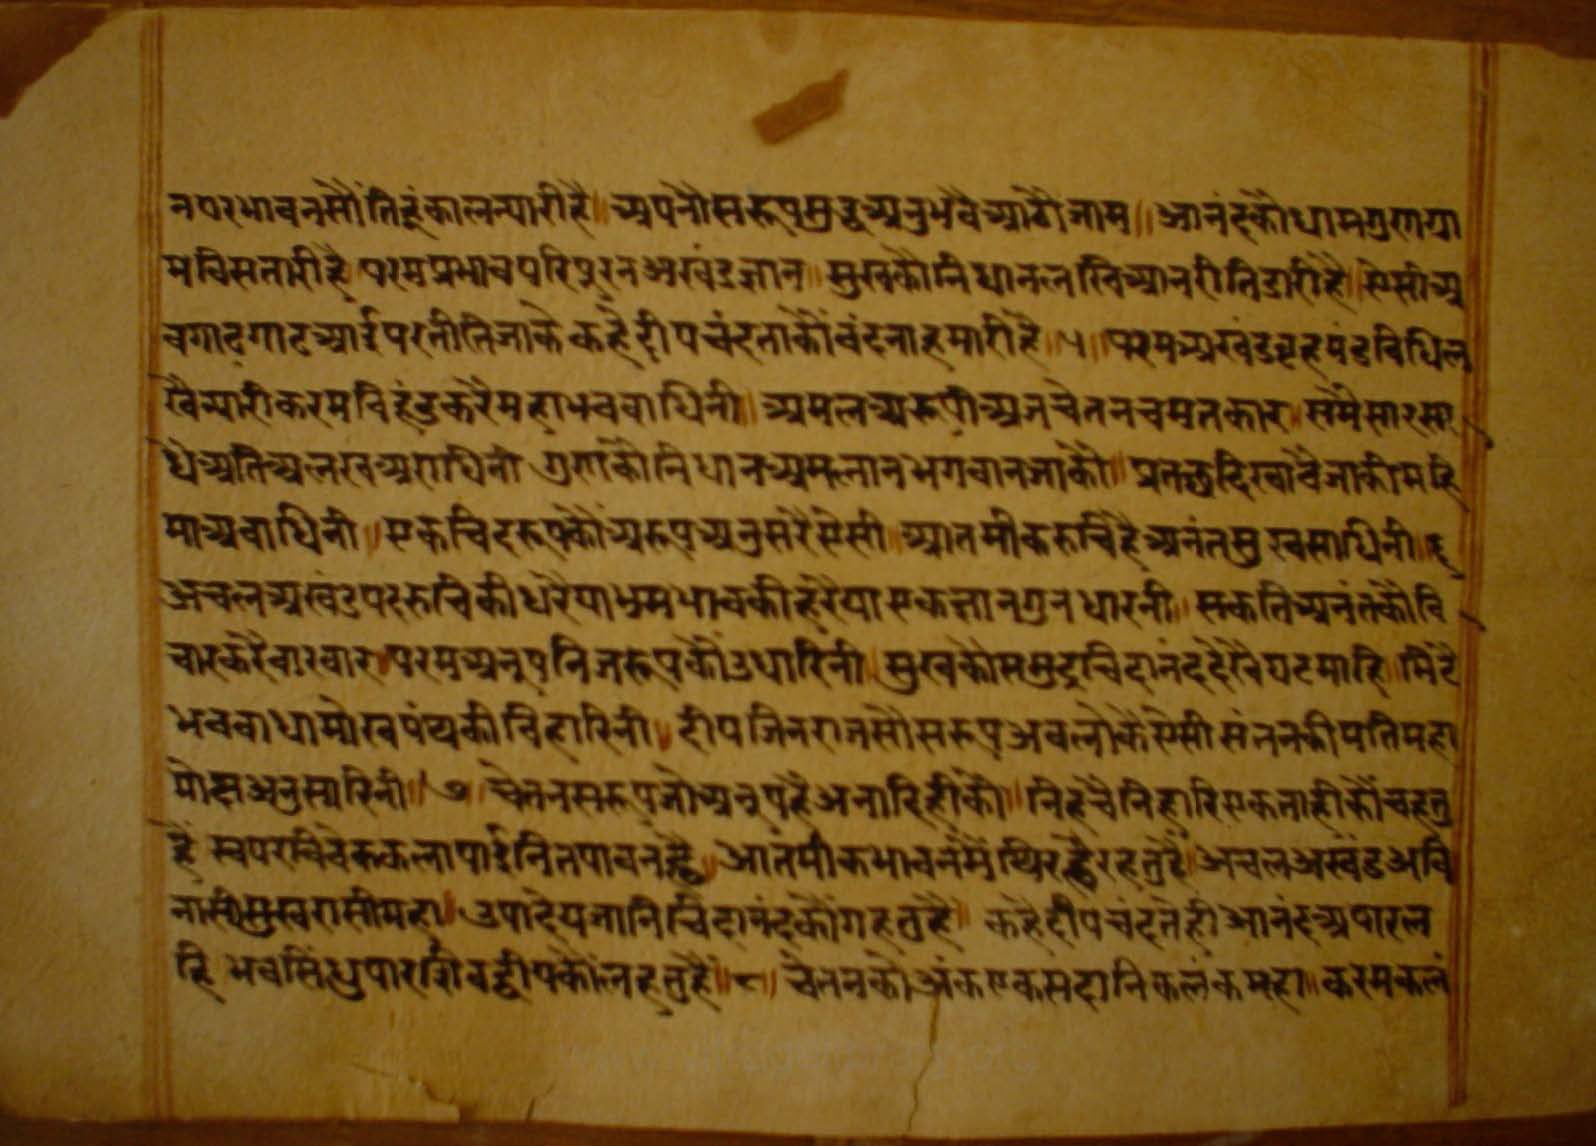 न परभावनसौं तिहूंकाल न्यारी है॥ अपनौ सरूप सुद्ध अनुभवै आठौ जाम॥ आनंदकौ धाम गुणग्रा
म विसतारी है परम प्रभाव परिपूरन अखंड ज्ञान॥ सुखकौ निधान लखि आन रीति डारी है॥ ऐसी अ
वगाढ गाढ आई परतीति जाके कहै दीपचंद ताकौं वंदना हमारी है॥५॥ परम अखंड ब्रह्मंड विधि ल
खै न्यारी करम विहंड करै महा भवबाधिनी॥ अमल अरूपी अज चेतन चमतकार॥ समैसार सा
धै अति अलख अराधिनी गुणकौ निधान अमलान भगवान जाकौ॥ प्रतछ दिखावै जाकी महि
मा अबाधिनी॥ एक चिदरूपकौं अरूप अनुसरै ऐसी॥ आतमीक रुचि है अनंतसुखसाधिनी॥६
अचल अखंड पद रुचिकी धरैया भ्रमभावकी हरैया एक ज्ञानगुनधारनी॥ सकति अनंतकौ वि
चार करै बारबार॥ परम अनूप निज रूपकौं उधारिनी॥ सुखकौ समुद्र चिदानंद देखै घटमाहि॥ मिटै
भवबाधा मोखपंथकी विहारिनी॥ दीप जिनराजसौ सरूप अवलोकै ऐसी संतनकी मति महा
मोक्ष अनुसारिनी॥७॥ चेतनसरूप जो अनूप है अनादिहीकौ॥ निहचै निहारि एक ताहीकौं चहतु
हैं स्वपर विवेक कला पाई नित पावन ह्वै॥ आतमीक भावनमैं थिर ह्वै रहतु है॥ अचल अखंड अवि
नासी सुखरासी महा॥ उपादेय जानि चिदानंदकौं गहतु है॥ कहै दीपचंद तेही आनंद अपार ल
हि भवसिंधुपार शिवद्वीपकौं लहतु है॥८॥ चेतनकौ अंक एक सदा निकलंक महा॥ करम कलं